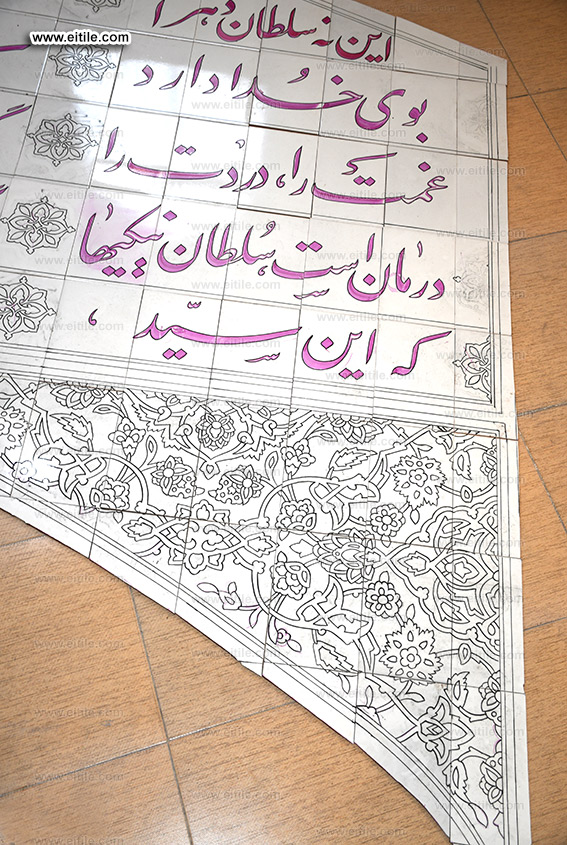 www.eitile.com
این نه سلطان دهر را
بوی خدا دارد
غمت را، دردت را
درمان است، سلطان نیکیها
که این سیّد،